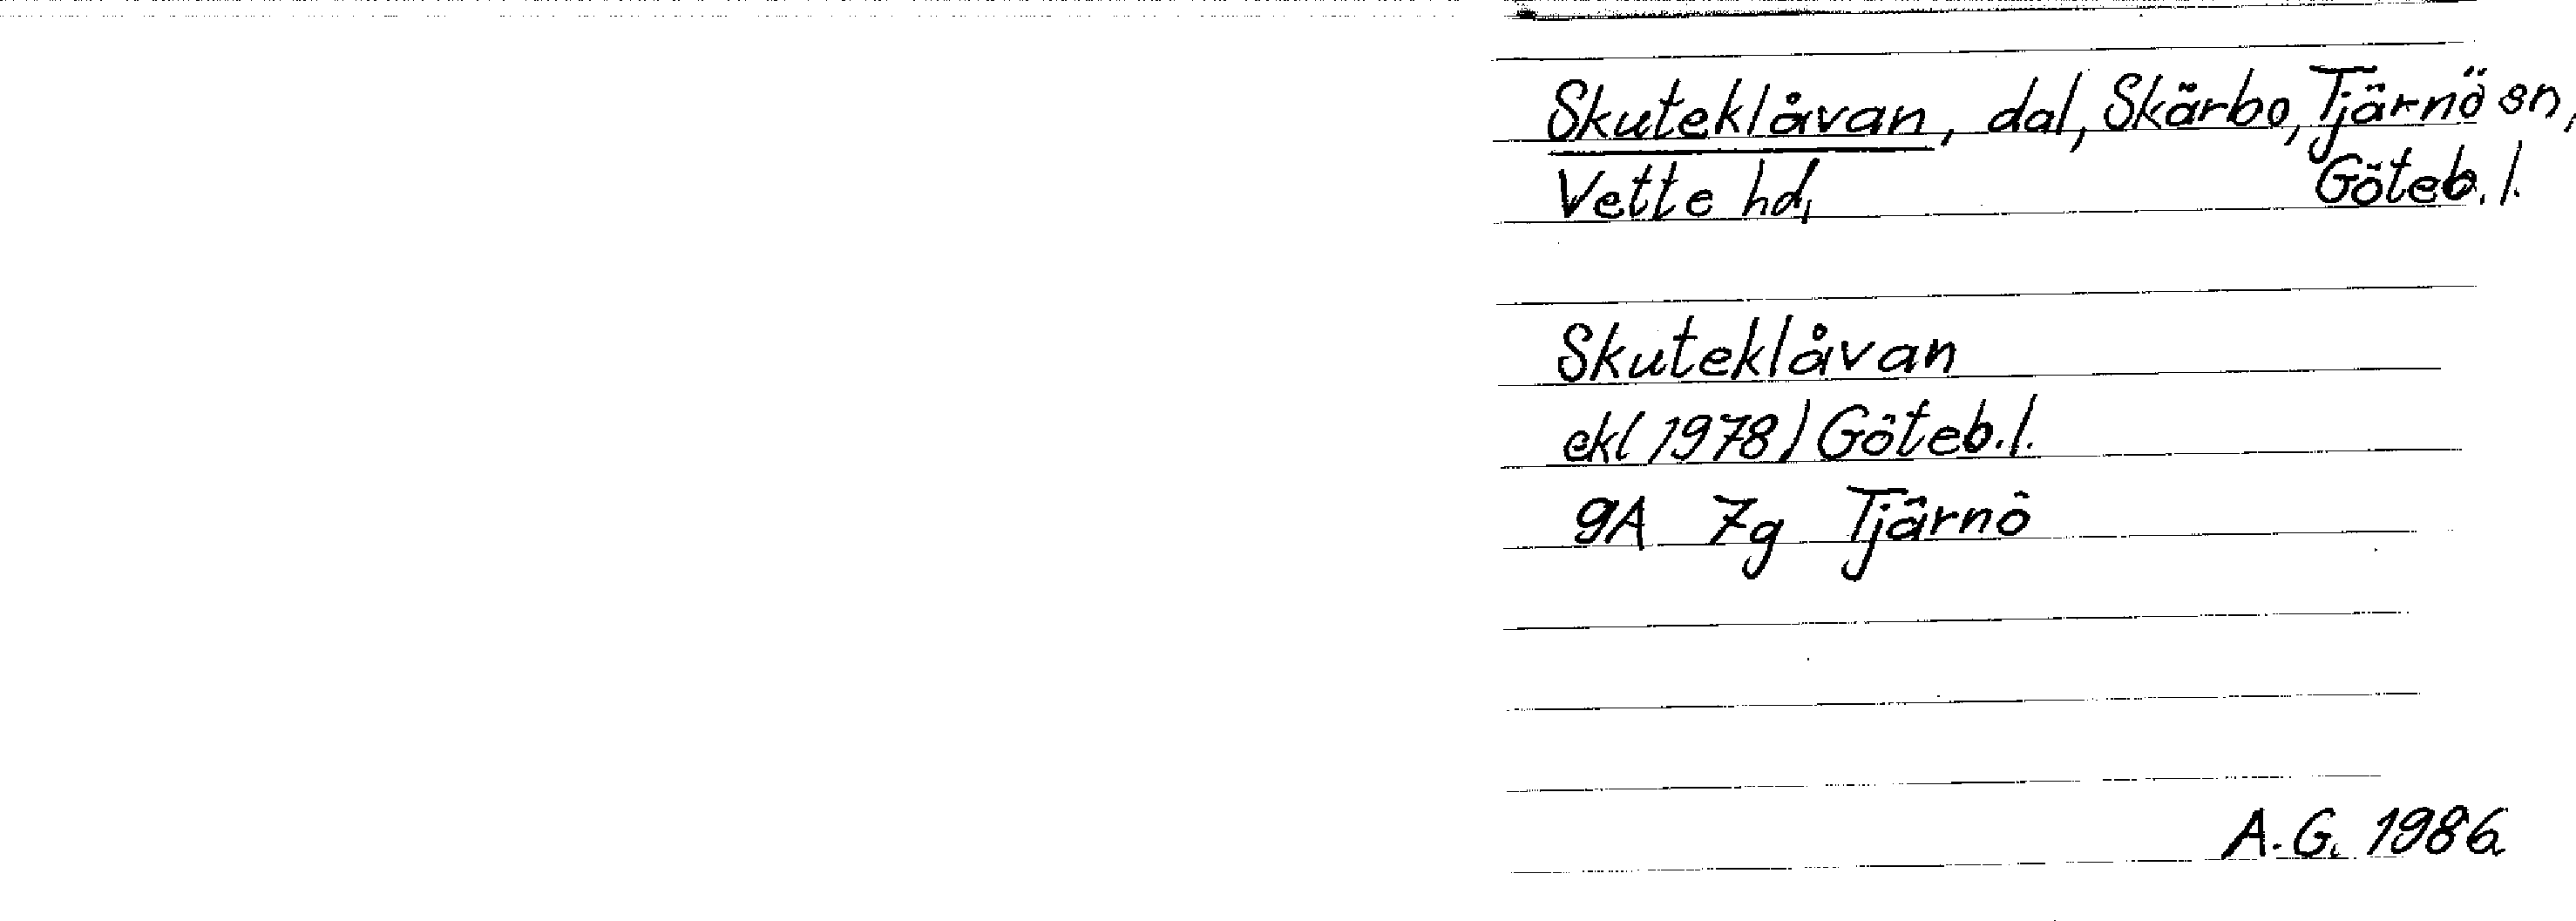 Skuteklåvan, dal, Skärbo, Tjärnö sn,
Vette hd, Göteb. l.
Skuteklåvan
ekl 1978) Göteb. l.
9A 7g Tjärnö
A.G. 1986.